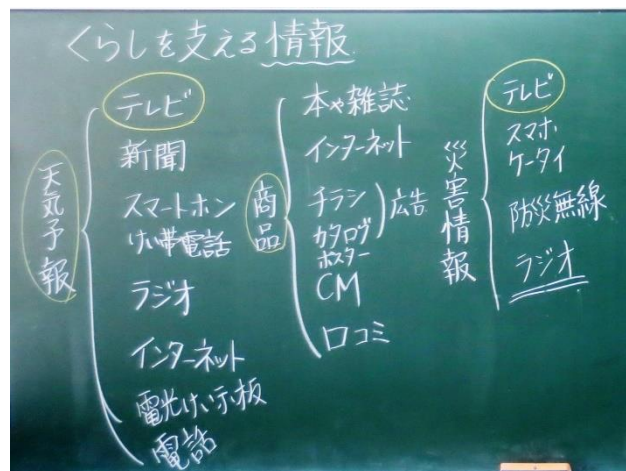 くらしを支える情報
天気予報
テレビ
新聞
スマートホン
けい帯電話
ラジオ
インターネット
電光けい示板
電話
商品
本や雑誌
インターネット
チラシ
カタログ
ポスター
広告
CM
口コミ
災害情報
テレビ
スマホ
ケータイ
防災無線
ラジオ